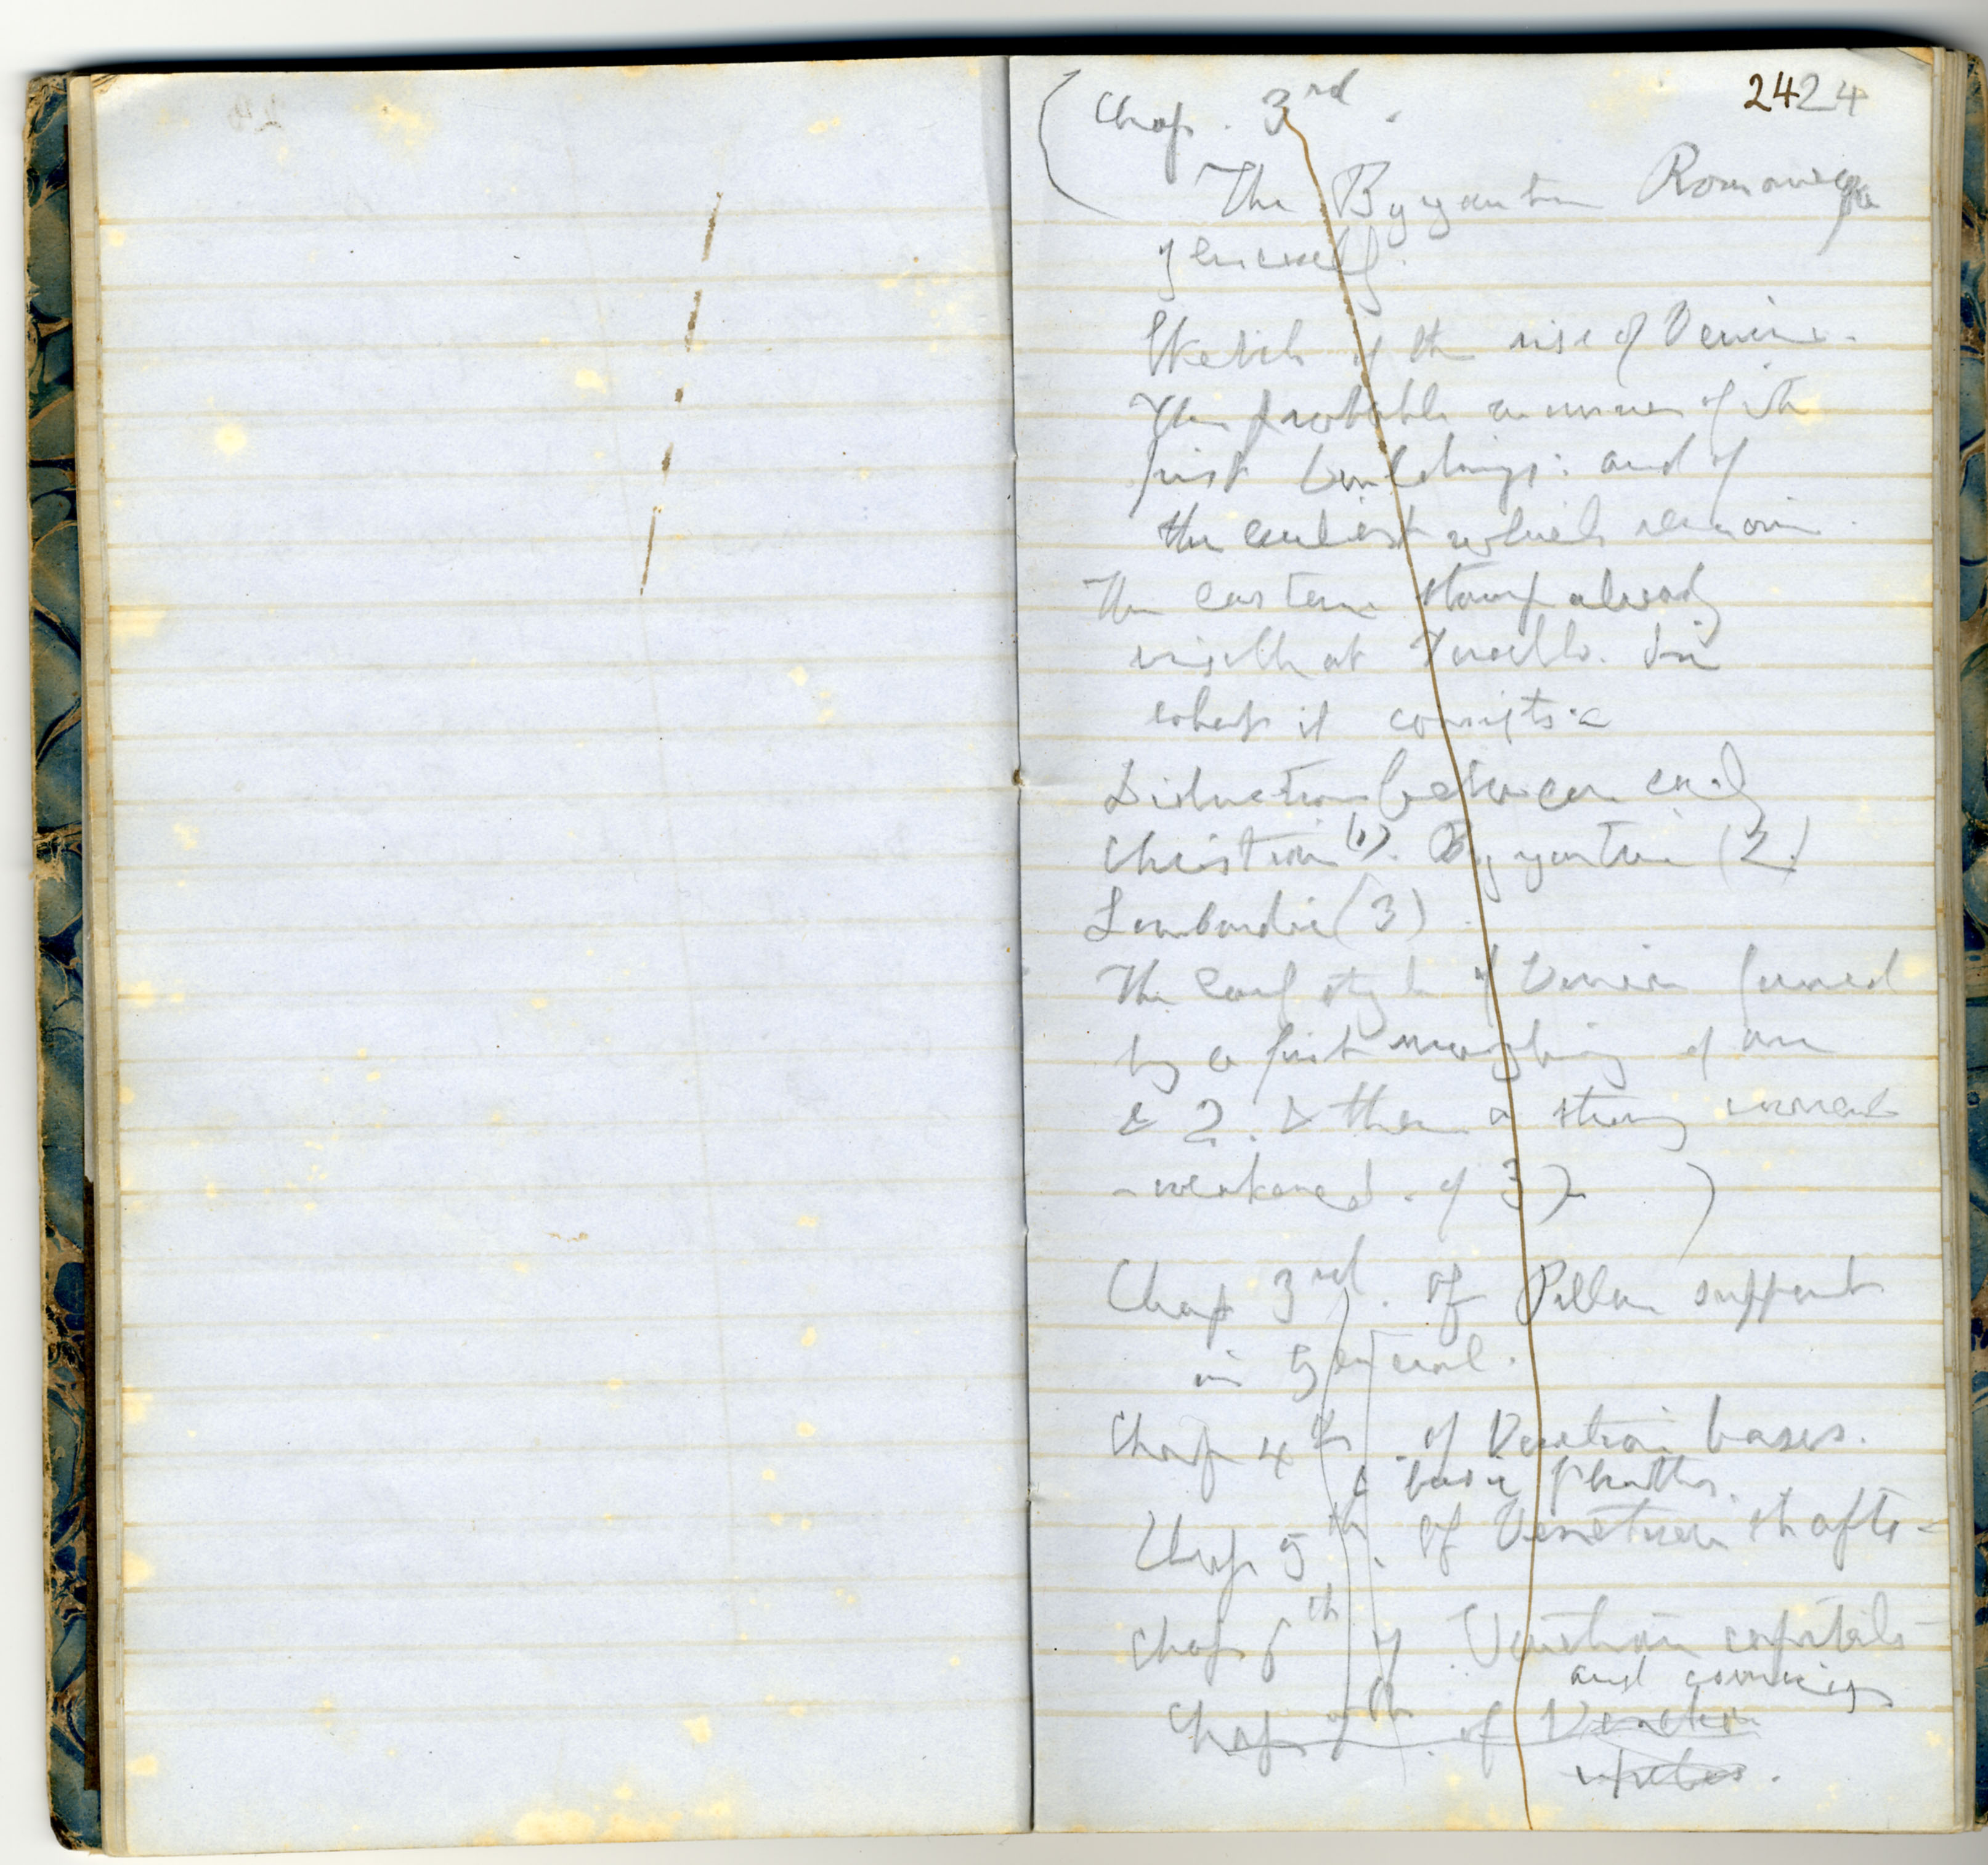 24 24
(Chap. 3rd.
The Byzantine Romanesque
generally.
Sketch of the rise of Venice.
The probable manner of its
first buildings: and of
the earliest which remain.
The eastern stamp already
visible at Torcello. In
what it consists.
Distinction between early
Christian (1). Byzantine (2)
Lombardic (3).
The early style of Venice formed
by a first mingling of one
& 2. & then a strong current
- weakened - of 3).)
Chap 3rd. Of Pillar support
in general.
Chap 4th. of Venetian bases.
& basic plinths.
Chap 5th. Of Venetian shafts
Chap 6th of Venetian capitals
and cornices
Chap 7th. of Venetian